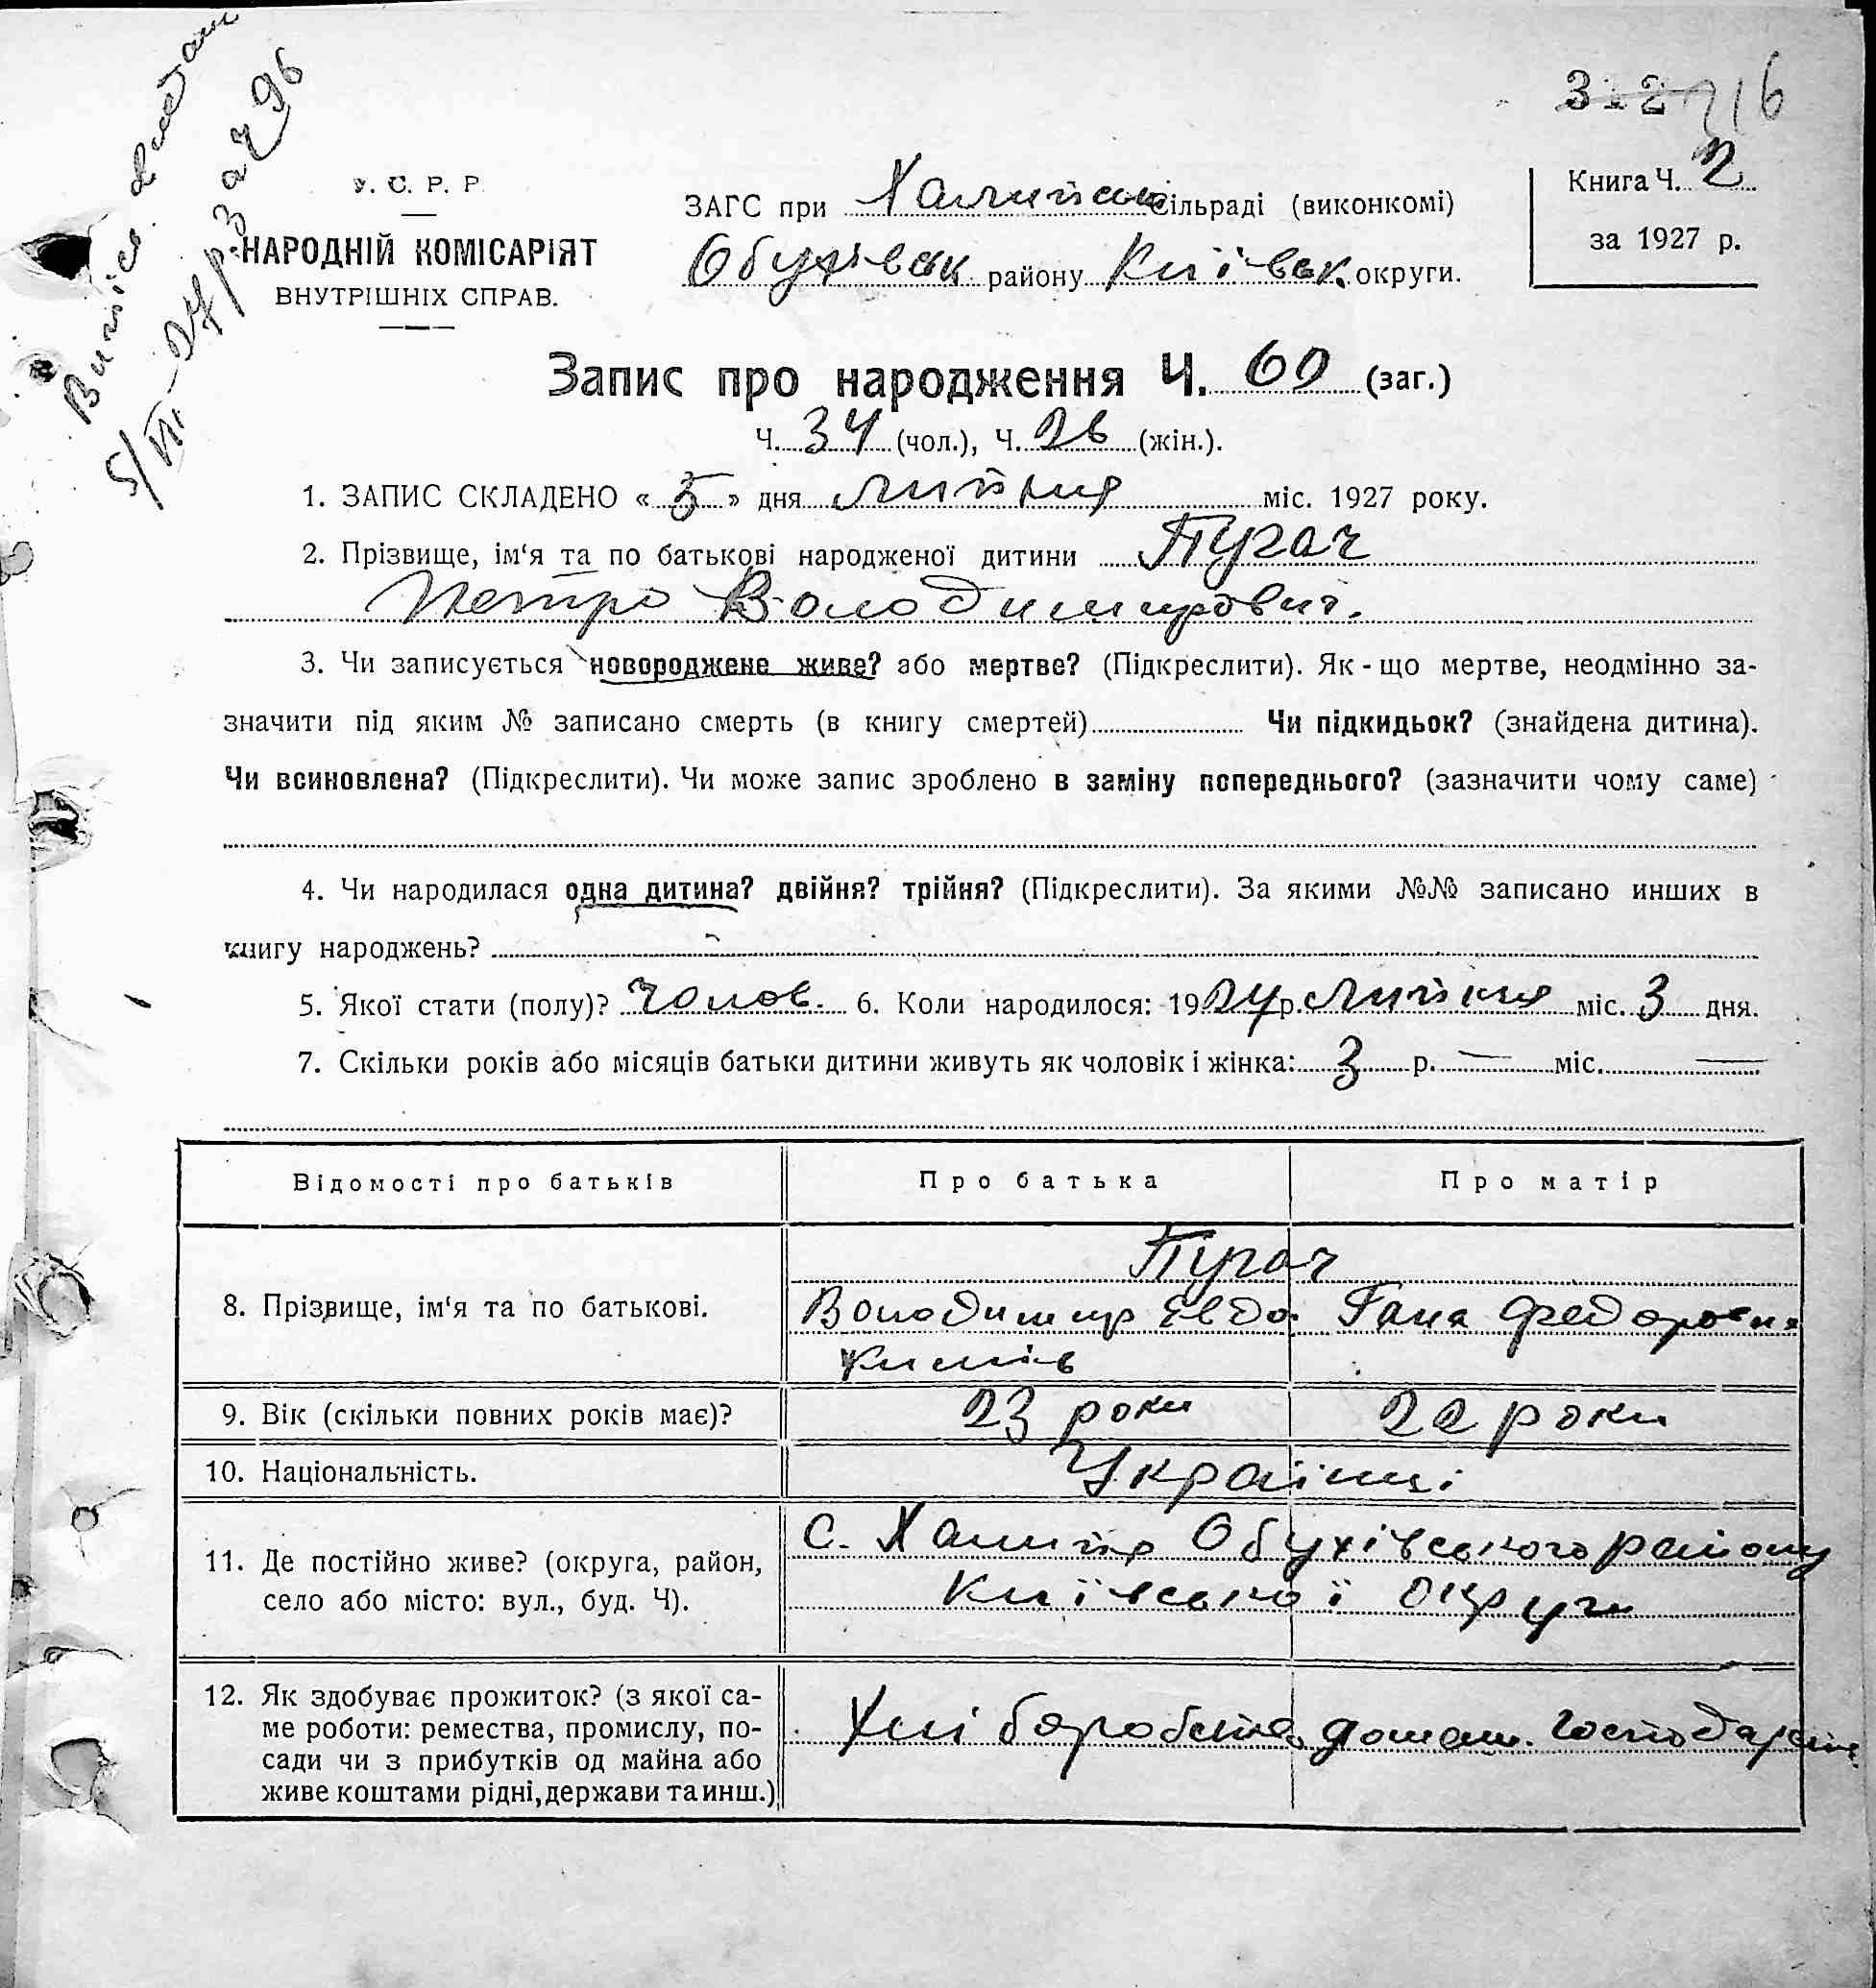 Випис видан
5/VII-27 р. за ч 96
312 216
У. С. Р. Р.
НАРОДНІЙ КОМІСАРІЯТ
ВНУТРІШНІХ СПРАВ.
ЗАГС при Халепськ сільраді (виконкомі)
Обухівськ району Київськ. округи.
Книга Ч. 2
за 1927 р.
Запис про народження Ч. 60 (заг.)
Ч. 34 (чол.), Ч. 26 (жін.).
1. ЗАПИС СКЛАДЕНО « 5 » дня липня міс. 1927 року.
2. Прізвище, ім'я та по батькові народженої дитини Пугач
Петро Володимирович.
3. Чи записується новороджене живе? або мертве? (Підкреслити). Як-що мертве, неодмінно за-
значити під яким № записано смерть (в книгу смертей) Чи підкидьок? (знайдена дитина).
Чи всиновлена? (Підкреслити). Чи може запис зроблено в заміну попереднього? (зазначити чому саме)
4. Чи народилася одна дитина? двійня? трійня? (Підкреслити). За якими №№ записано инших в
книгу народжень?
5. Якої стати (полу)? Чолов. 6. Коли народилося: 1927 р. Липня міс. 3 дня.
7. Скільки років або місяців батьки дитини живуть як чоловік і жінка: 3 р. — міс. —
Відомості про батьків Про батька Про матір
Пугач
8. Прізвище, ім'я та по батькові. Володимир Евдо- Гана Федоровн.
кимів
9. Вік (скільки повних років має)? 23 роки 22 роки
10. Національність. Українці
11. Де постійно живе? (округа, район,
село або місто: вул., буд. Ч).
с. Халепя Обухівського району
Київської округи
12. Як здобуває прожиток? (з якої са-
ме роботи: ремества, промислу, по-
сади чи з прибутків од майна або
живе коштами рідні, держави та инш.)
Хліборобство домашн. господарств.